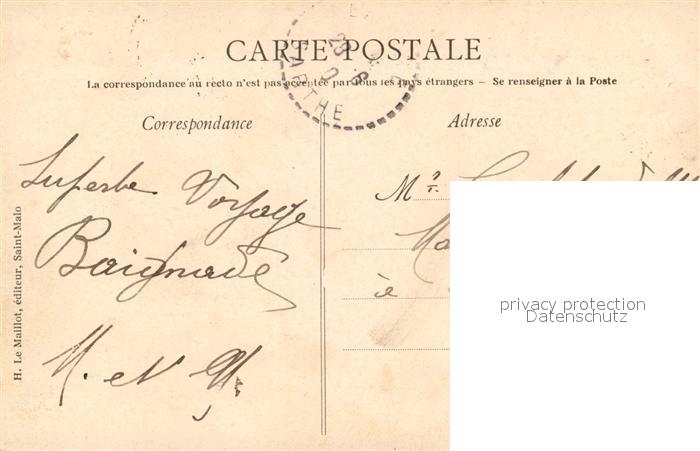 CARTE POSTALE
La correspondance au recto n'est pas acceptée par tous les pays étrangers – Se renseigner à la Poste
Correspondance
Superbe Voyage
Baignade
M. et M
Adresse
Mr
à
H. Le Maillot, éditeur, Saint-Malo
SARTHE
privacy protection
Datenschutz